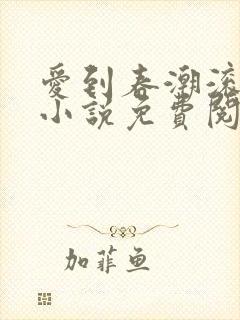 愛到春潮滾
小說免費閱
加菲魚